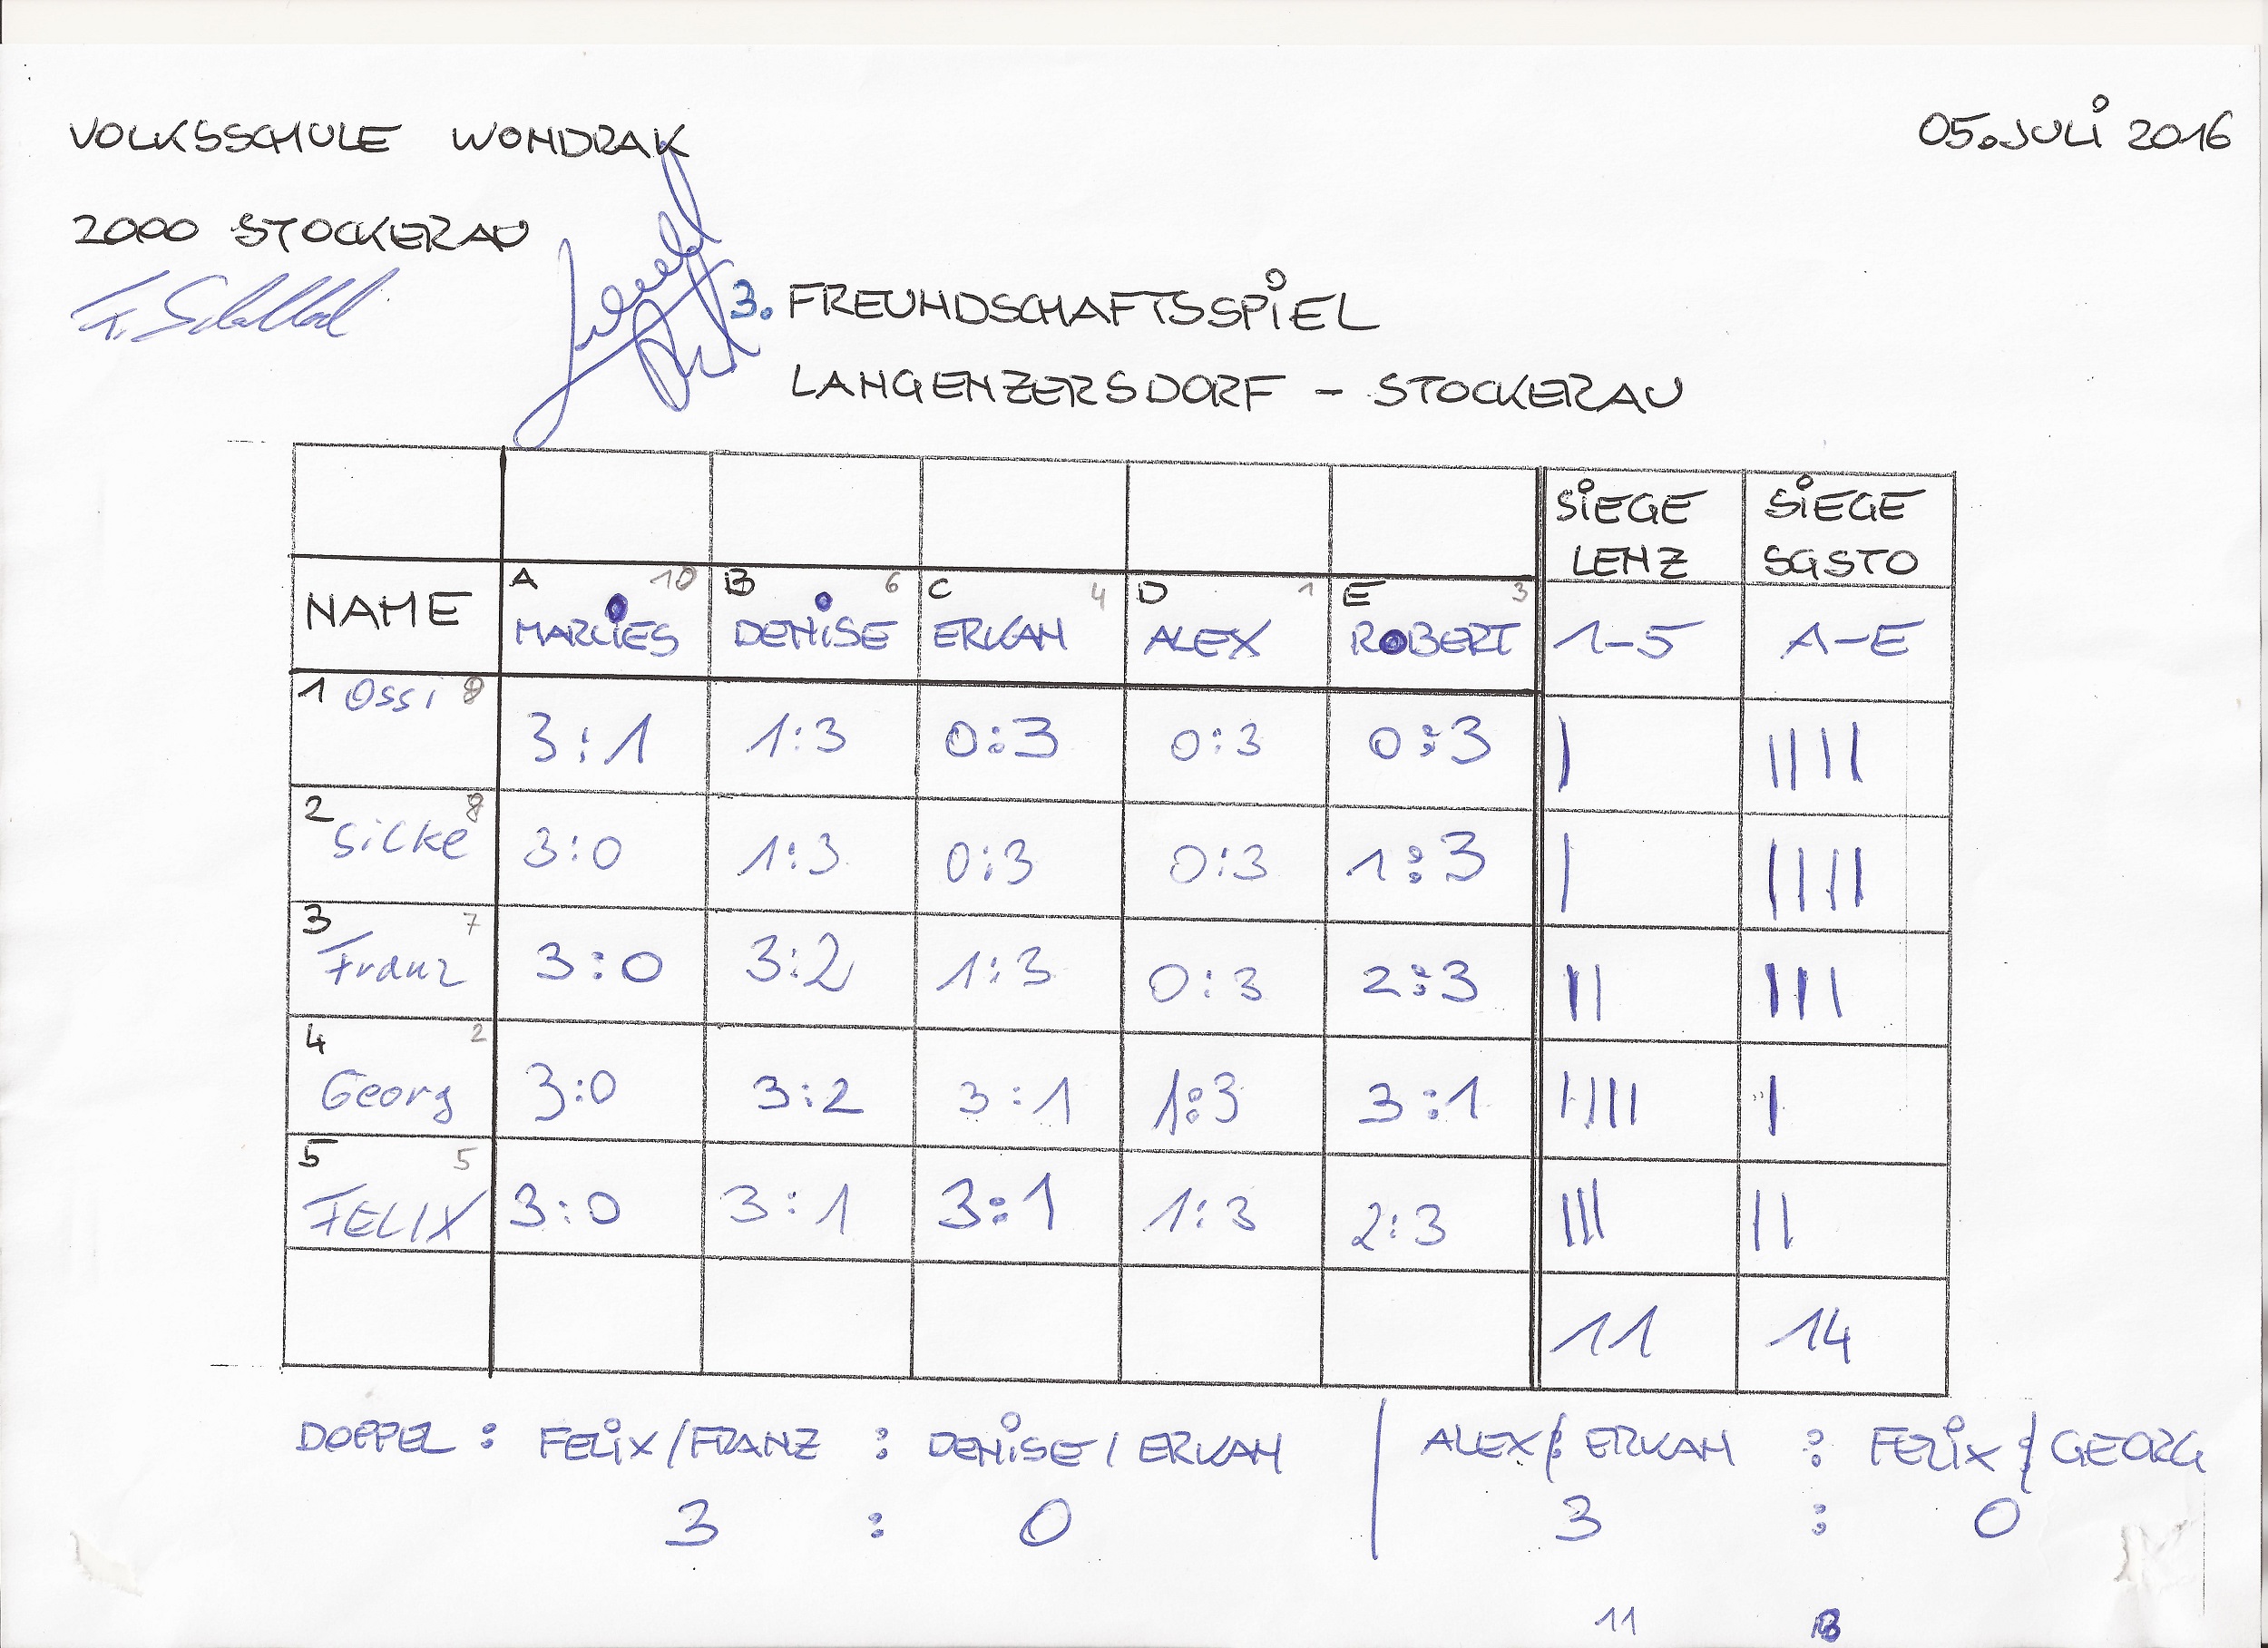 VOLKSSCHULE WONDRAK
05. JULI 2016
2000 STOCKERAU
3. FREUNDSCHAFTSSPIEL
LANGENZERSDORF - STOCKERAU
SIEGE LENZ SIEGE SGSTO
NAME A 10 MARLIES B 6 DENISE C 4 ERKAN D 1 ALEX E 3 ROBERT 1-5 A-E
1 Ossi 9 3:1 1:3 0:3 0:3 0:3 | ||||
2 Silke 8 3:0 1:3 0:3 0:3 1:3 | ||||
3 Franz 7 3:0 3:2 1:3 0:3 2:3 || |||
4 Georg 2 3:0 3:2 3:1 1:3 3:1 |||| |
5 FELIX 5 3:0 3:1 3:1 1:3 2:3 ||| ||
11 14
DOPPEL: FELIX/FRANZ : DENISE/ERKAN | ALEX/ERKAN : FELIX/GEORG
3 : 0 3 : 0
11